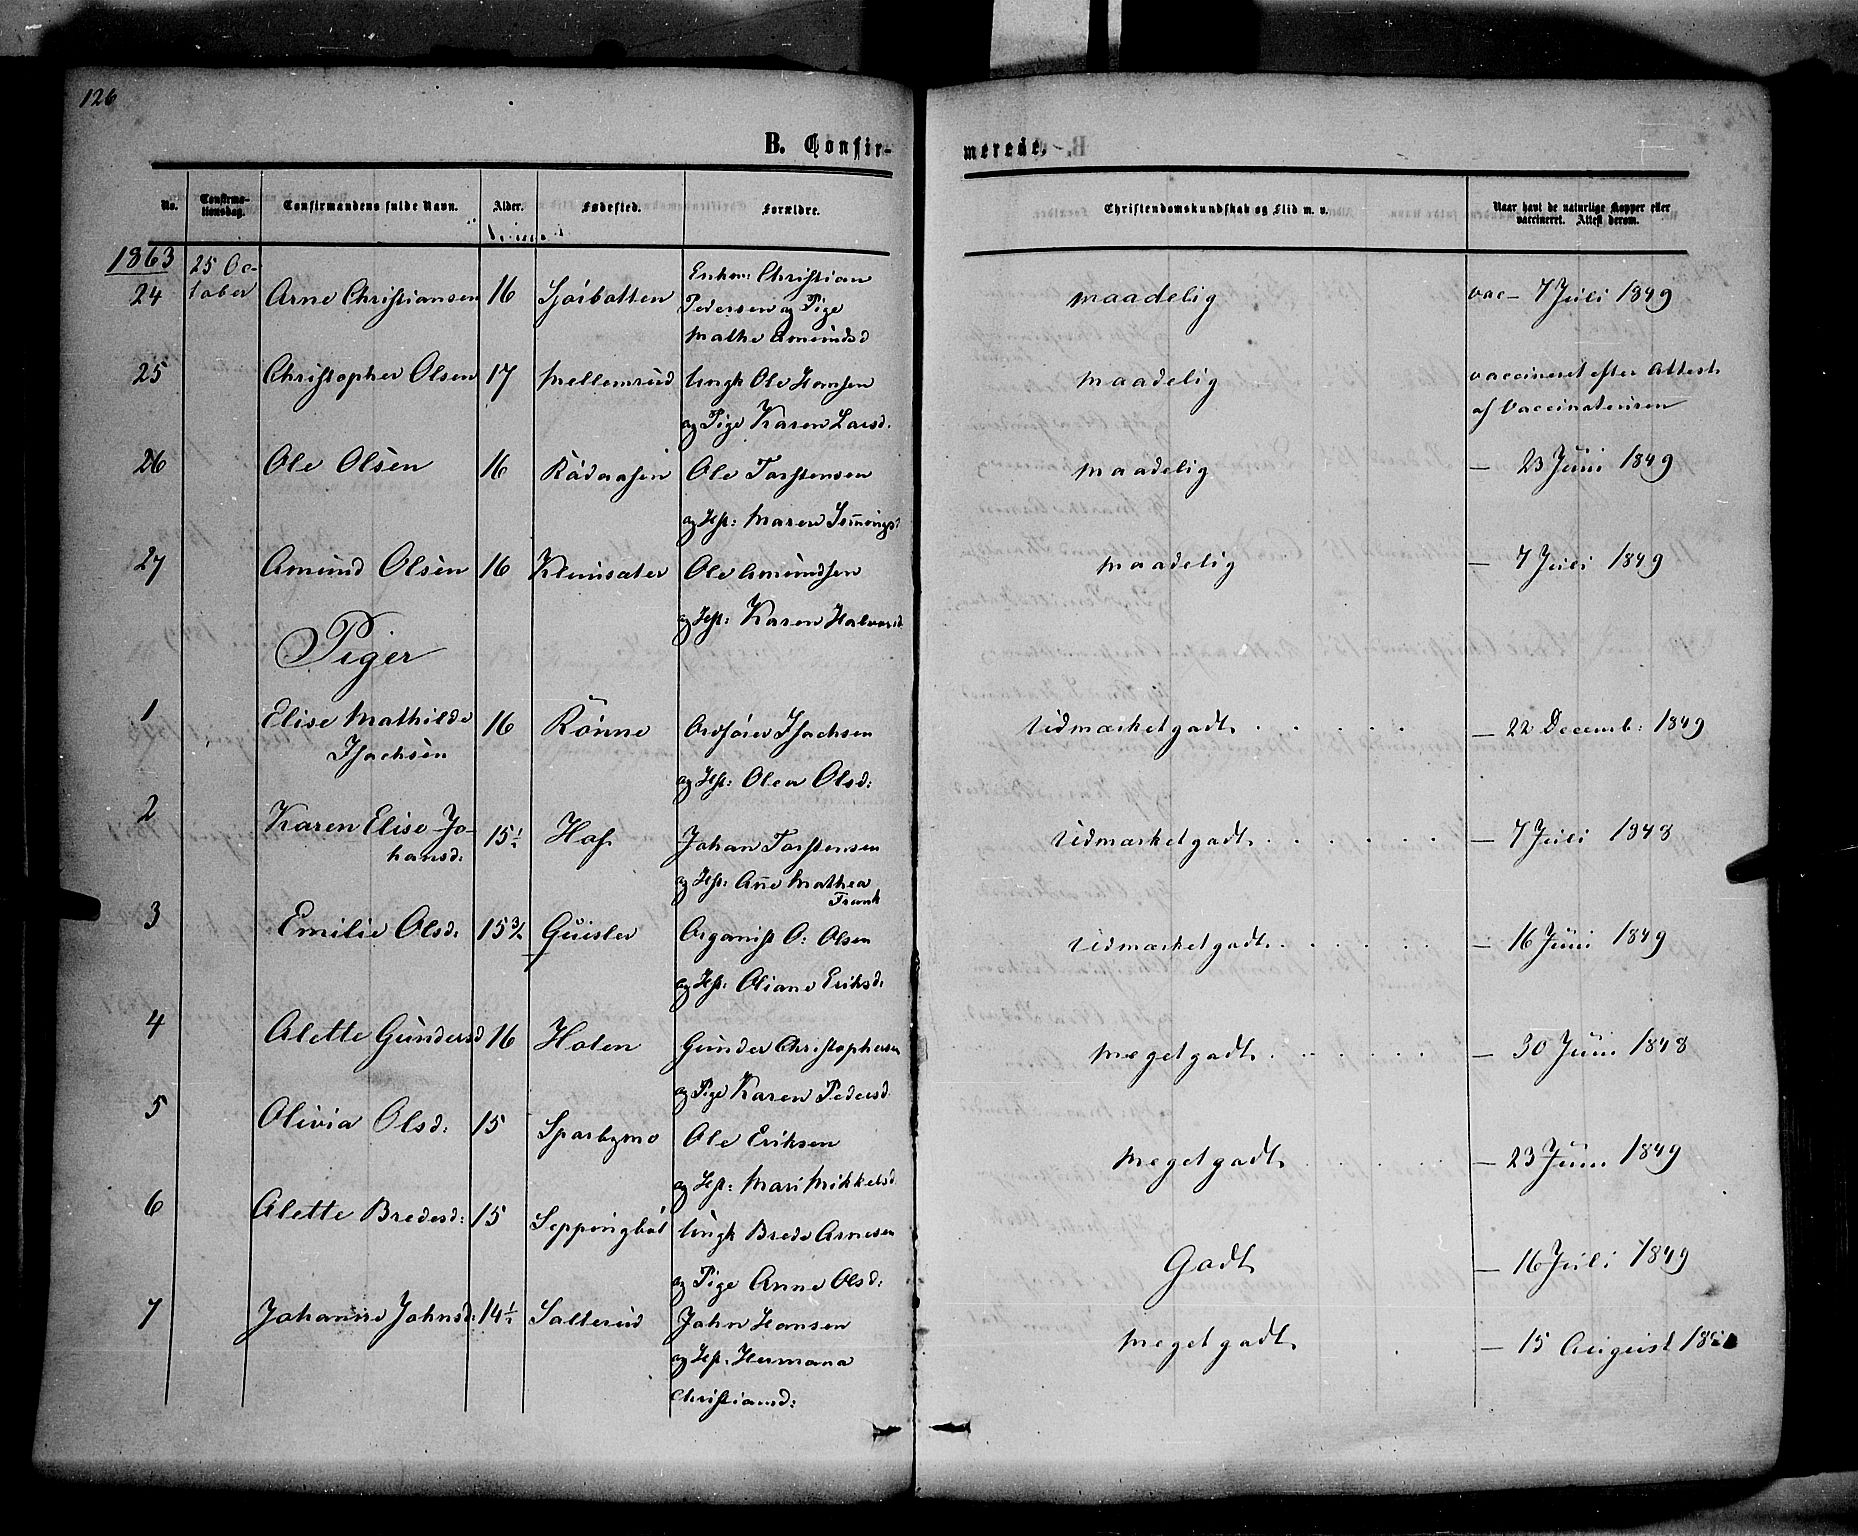 126
B. Confir-
merede.
No.
Confirma-
tionsdag.
Confirmandens fulde Navn.
Alder.
Fødested.
Forældre.
Christendomskundskab og Flid m. v.
Naar havt de naturlige Kopper eller
vaccineret. Attest derom.
1863
25 Oc-
tober
24 Arne Christiansen 16 Sjörbotten Enkem: Christian
Pedersen og Pige
Mathe Amundsd
maadelig
vac— 7 Juli 1849
25 Christopher Olsen 17 Mellemrud Ungk Ole Hansen
og Pige Karen Larsd.
maadelig
vaccineret efter Attest
af Vaccinateuren
26 Ole Olsen 16 Rödaasen Ole Torstensen
og Hst: Maren
maadelig
— 23 Juni 1849
27 Amund Olsen 16 Ole Amundsen
og Hst: Karen Halvorsd
maadelig
— 7 Juli 1849
Piger
1 Elise Mathilde
Isachsen
16 Rönne Ordförer Isachsen
og Hst: Olea Olsd:
Udmærket godt
— 22 Decemb: 1849
2 Karen Elise Jo-
hansd:
15½ Hof Johan Torstensen
og Hst: Añe Mathea
Frank
Udmærket godt
— 7 Juli 1848
3 Emilie Olsd: 15¾ Guisler Organist O: Olsen
og Hst: Oliane Eriksd:
Udmærket godt
— 16 Juni 1849
4 Alette Gundersd 16 Holen Gunder Christophersen
og Pige Karen Pedersd
Meget godt
— 30 Juni 1848
5 Olivia Olsd: 15 Sparbymo Ole Eriksen
og Hst: Mari Mikkelsd
Meget godt
— 23 Juni 1849
6 Alette Bredesd: 15 Ungk Brede Arnesen
og Pige Anne Olsd:
Godt
— 16 Juli 1849
7 Johanne Johnsd: 14½ Salterud John Hansen
og Hst. Hermana
Christiansd:
Meget godt
— 15 August